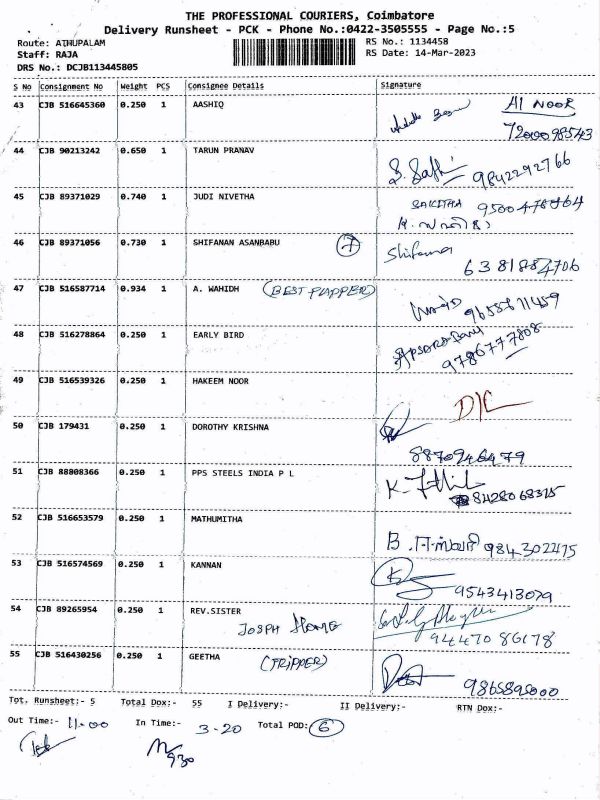 THE PROFESSIONAL COURIERS, Coimbatore
Delivery Runsheet - PCK - Phone No.:0422-3505555 - Page No.:5
Route: ATHUPALAM
RS No.: 1134458
Staff: RAJA
RS Date: 14-Mar-2023
DRS No.: DCJB113445805
S No Consignment No Weight PCS Consignee Details Signature
43 CJB 516645360 0.250 1 AASHIQ Al NOOR
7200098543
44 CJB 90213242 0.650 1 TARUN PRANAV
9842292766
45 CJB 89371029 0.740 1 JUDI NIVETHA
46 CJB 89371056 0.730 1 SHIFANAN ASANBABU 7 Shifana
6381884706
47 CJB 516587714 0.934 1 A. WAHIDH
9655811459
48 CJB 516278864 0.250 1 EARLY BIRD
9786777808
49 CJB 516539326 0.250 1 HAKEEM NOOR
D/L
50 CJB 179431 0.250 1 DOROTHY KRISHNA
8870946479
51 CJB 88808366 0.250 1 PPS STEELS INDIA P L
8428068375
52 CJB 516653579 0.250 1 MATHUMITHA
53 CJB 516574569 0.250 1 KANNAN
9543413079
54 CJB 89265954 0.250 1 REV.SISTER
JOSPH HOME
9447086178
55 CJB 516430256 0.250 1 GEETHA
(TRIPPER)
Tot. Runsheet:- 5 Total Dox:- 55 I Delivery:- II Delivery:- RTN Dox:-
Out Time:- 11.00 In Time:- 3-20 Total POD: 6